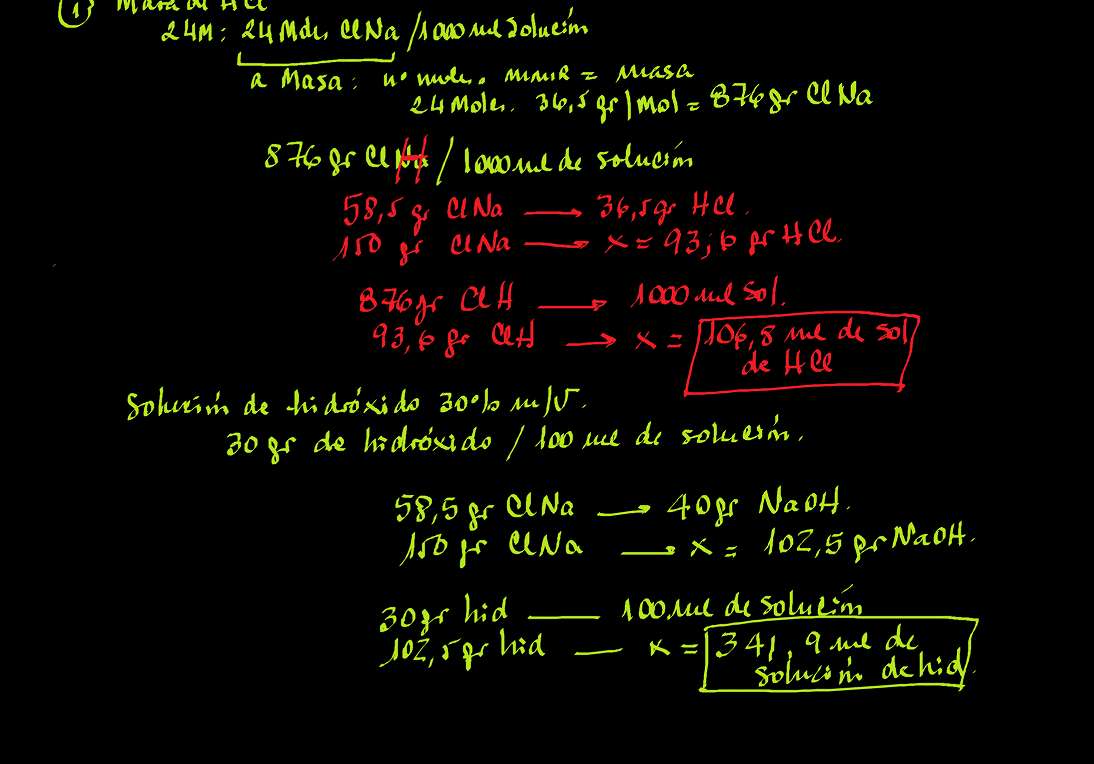 ① Masa de HCl
24M: 24 Moles ClNa / 1000 ml solución
a Masa: nº moles . MMR = masa
24 Moles. 36,5 gr/mol = 876 gr ClNa
876 gr ClH / 1000 ml de solución
58,5 gr ClNa → 36,5 gr HCl.
150 gr ClNa → x = 93,6 gr HCl.
876 gr ClH → 1000 ml sol.
93,6 gr ClH → x = 106,8 ml de sol
de HCl
Solución de hidróxido 30% m/V.
30 gr de hidróxido / 100 ml de solución.
58,5 gr ClNa → 40 gr NaOH.
150 gr ClNa → x = 102,5 gr NaOH.
30 gr hid — 100 ml de solución
102,5 gr hid — x = 341,9 ml de
solución de hid.